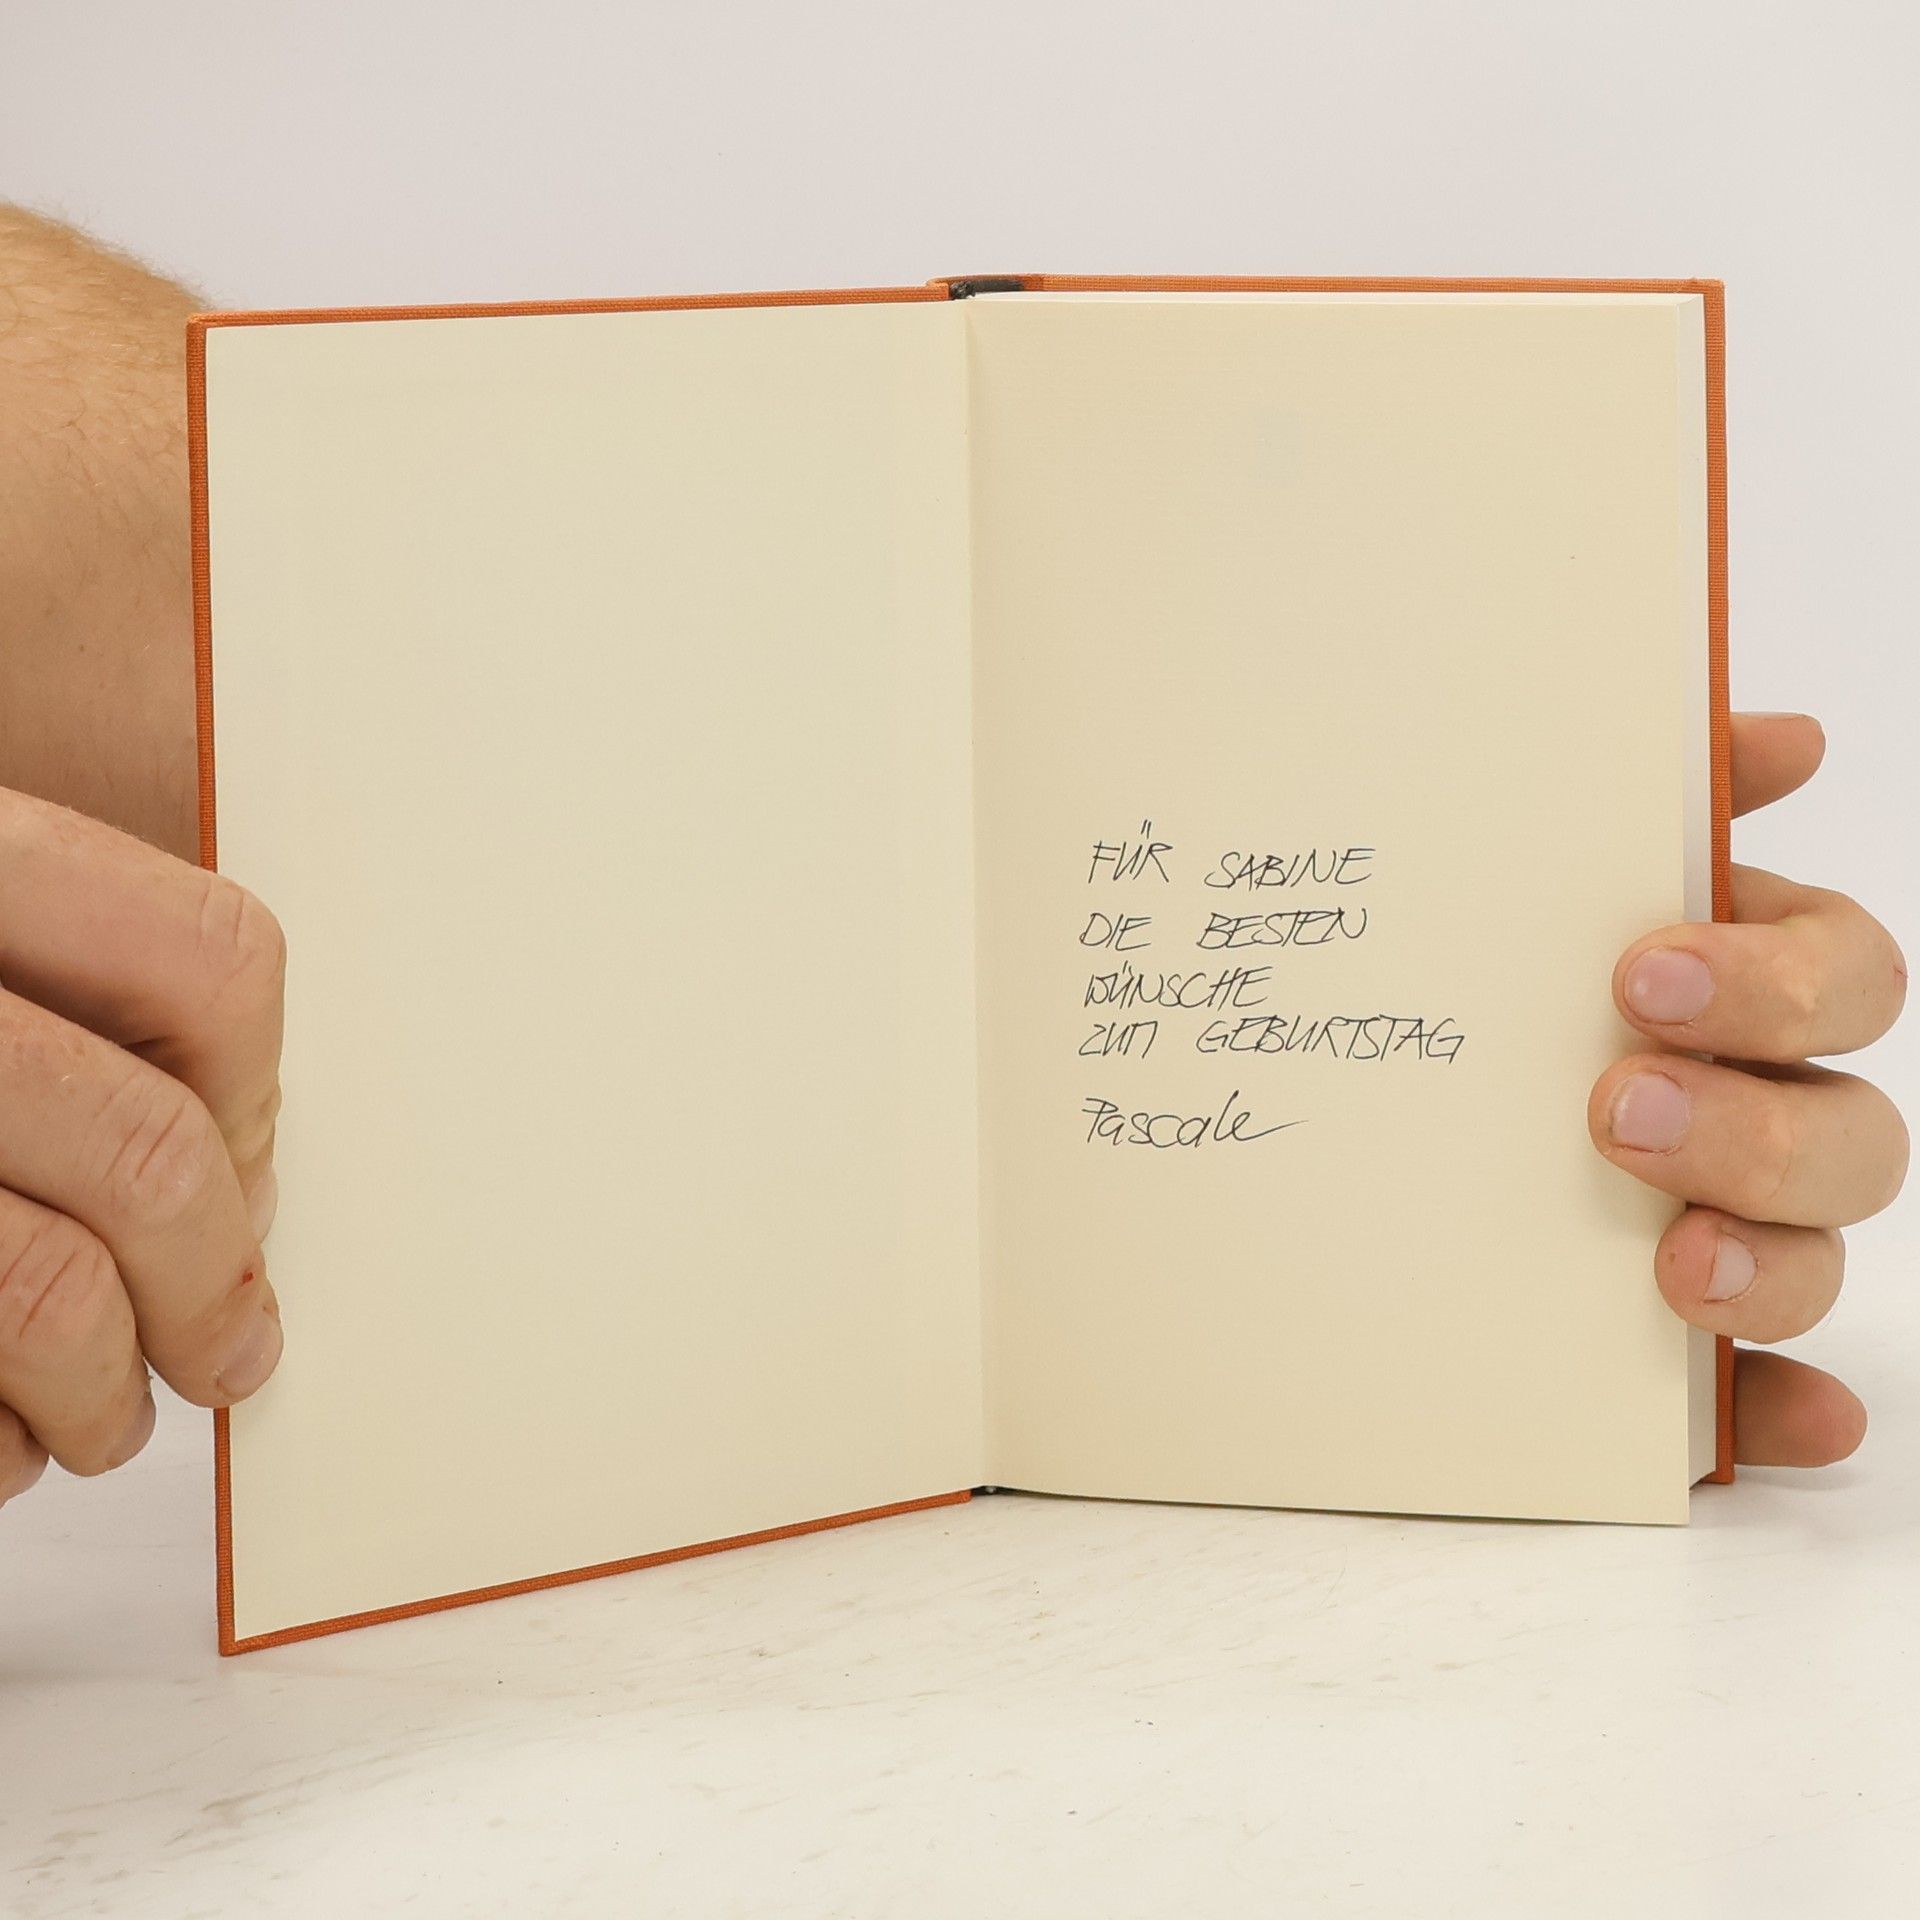 FÜR SABINE
DIE BESTEN
WÜNSCHE
ZUM GEBURTSTAG
Pascale